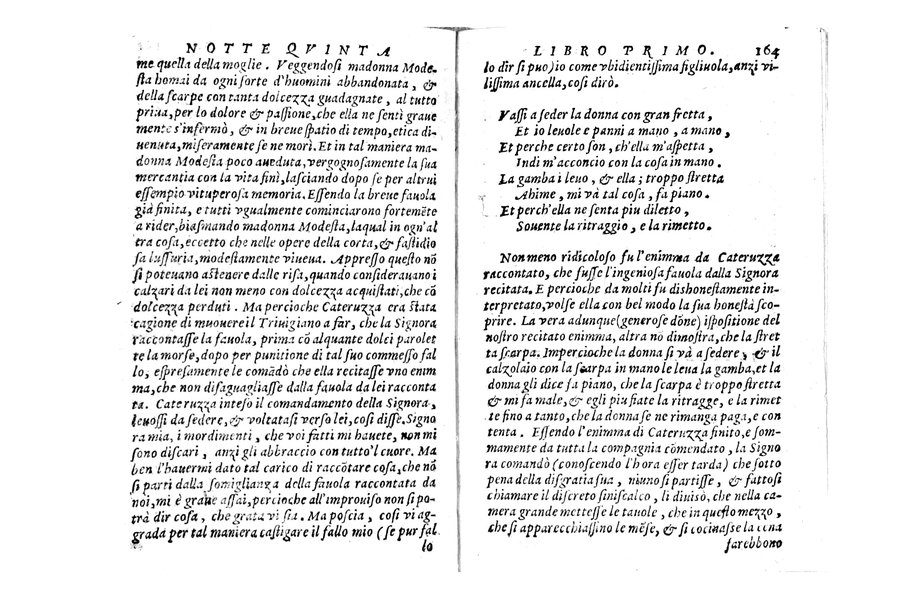 NOTTE QVINTA
me quella della moglie. Veggendosi madonna Mode-
sta homai da ogni sorte d'huomini abbandonata, &
della scarpe con tanta dolcezza guadagnate, al tutto
priua, per lo dolore & passione, che ella ne sentì graue
mente s'infermò, & in breue spatio di tempo, etica di-
uenuta, miseramente se ne morì. Et in tal maniera ma-
donna Modesta poco aueduta, vergognosamente la sua
mercantia con la vita finì, lasciando dopo se per altrui
essempio vituperosa memoria. Essendo la breue fauola
già finita, e tutti vgualmente cominciarono fortemẽte
a rider, biasmando madonna Modesta, laqual in ogn'al
tra cosa, eccetto che nelle opere della corta, & fastidio
sa lussuria, modestamente viueua. Appresso questo nõ
si poteuano astenere dalle risa, quando considerauano i
calzari da lei non meno con dolcezza acquistati, che cõ
dolcezza perduti. Ma percioche Cateruzza era stata
cagione di muouere il Triuigiano a far, che la Signora
raccontasse la fauola, prima cõ alquante dolci parolet
te la morse, dopo per punitione di tal suo commesso fal
lo, espresamente le comãdò che ella recitasse vno enim
ma, che non disaguagliasse dalla fauola da lei racconta
ta. Cateruzza inteso il comandamento della Signora,
leuossi da sedere, & voltatasi verso lei, così disse. Signo
ra mia, i mordimenti, che voi fatti mi hauete, non mi
sono discari, anzi gli abbraccio con tutto'l cuore. Ma
ben l'hauermi dato tal carico di raccõtare cosa, che nõ
si parti dalla somiglianza della fauola raccontata da
noi, mi è graue assai, percioche all'improuiso non si po-
trà dir cosa, che grata vi sia. Ma poscia, così vi ag-
grada per tal maniera castigare il fallo mio (se pur fal
lo
LIBRO PRIMO. 164
lo dir si puo) io come vbidientissima figliuola, anzi vi-
lissima ancella, così dirò.
Vassi a seder la donna con gran fretta,
Et io leuole e panni a mano, a mano,
Et perche certo son, ch'ella m'aspetta,
Indi m'acconcio con la cosa in mano.
La gamba i leuo, & ella; troppo stretta
Ahime, mi và tal cosa, fa piano.
Et perch'ella ne senta piu diletto,
Souente la ritraggio, e la rimetto.
Non meno ridicoloso fu l'enimma da Cateruzza
raccontato, che fusse l'ingeniosa fauola dalla Signora
recitata. E perciche da molti fu dishonestamente in-
terpretato, volse ella con bel modo la sua honestà sco-
prire. La vera adunque (generose dõne) ispositione del
nostro recitato enimma, altra nõ dimostra, che la stret
ta scarpa. Impercioche la donna si và a sedere, & il
calzolaio con la scarpa in mano le leua la gamba, et la
donna gli dice fa piano, che la scarpa è troppo stretta
& mi fa male, & egli piu fiate la ritragge, e la rimet
te fino a tanto, che la donna se ne rimanga paga, e con
tenta. Essendo l'enimma di Cateruzza finito, e som-
mamente da tutta la compagnia comendato, la Signo
ra comandò (conoscendo l'hora esser tarda) che sotto
pena della disgratia sua, niuno si partisse, & fattosi
chiamare il discreto siniscalco, li diuisò, che nella ca-
mera grande mettesse le tauole, che in questo mezzo,
che si apparecchiassino le mẽse, & si cocinasse la cena
farebbono